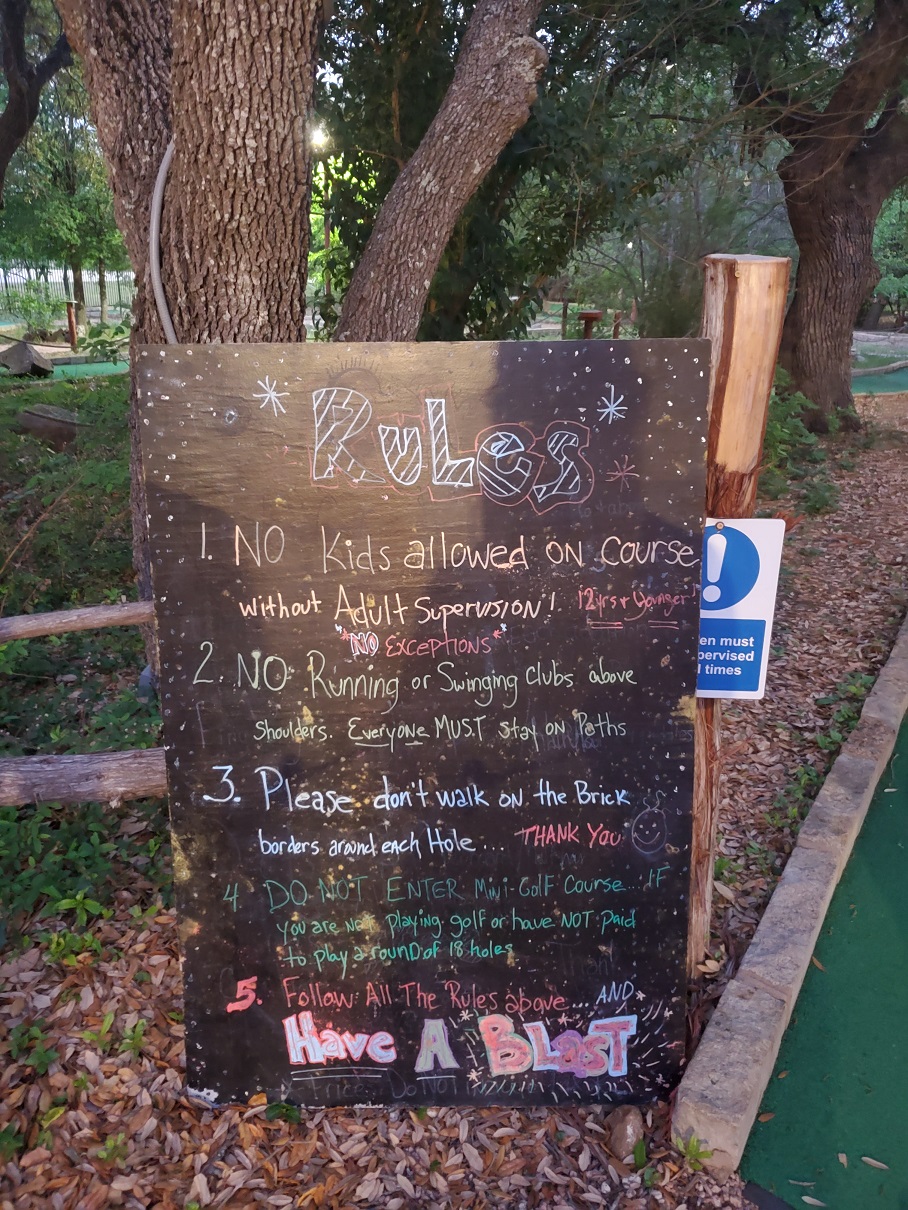 RuLes
1. NO Kids allowed on Course
without Adult Supervision! 12 yrs & Younger!
*NO Exceptions*
2. NO Running or Swinging Clubs above
shoulders. Everyone MUST stay on Paths
3. Please don't walk on the Brick
borders around each Hole... THANK YOU
4 DO NOT ENTER Mini-Golf Course... IF
you are not playing golf or have NOT paid
to play a round of 18 holes
5. Follow All The Rules above... AND
Have A BLasT
en must
pervised
times